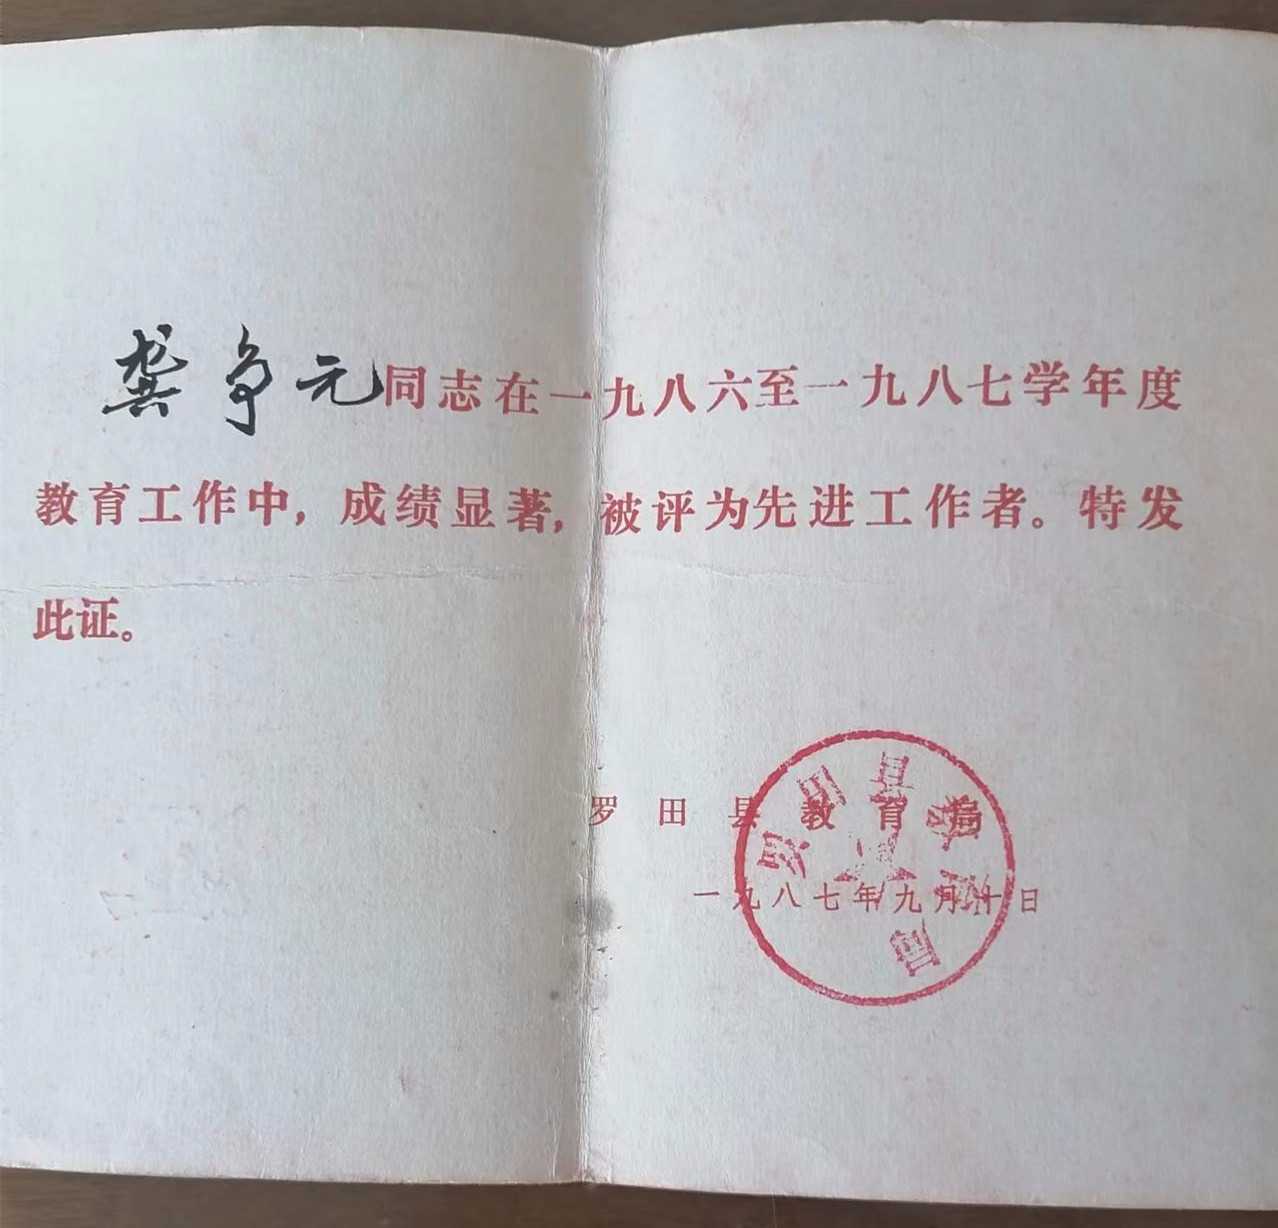 龚争元同志在一九八六至一九八七学年度
教育工作中，成绩显著，被评为先进工作者。特发
此证。
罗田县教育局
一九八七年九月十日
罗田县教育局